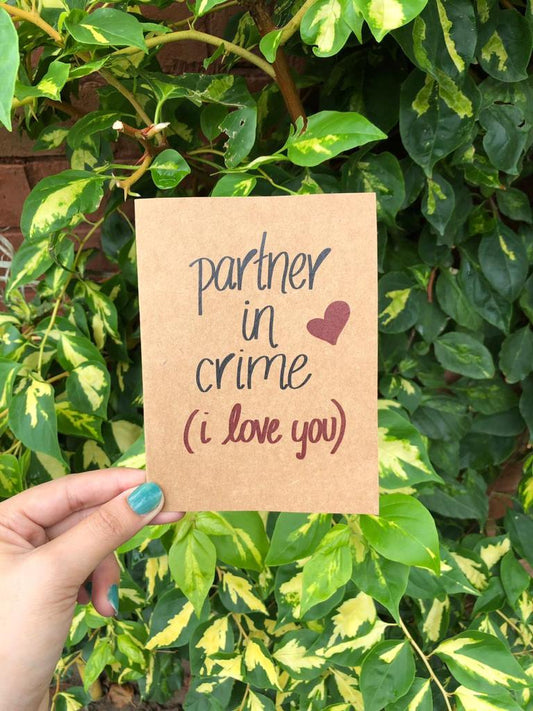 partner
in
crime
(i love you)